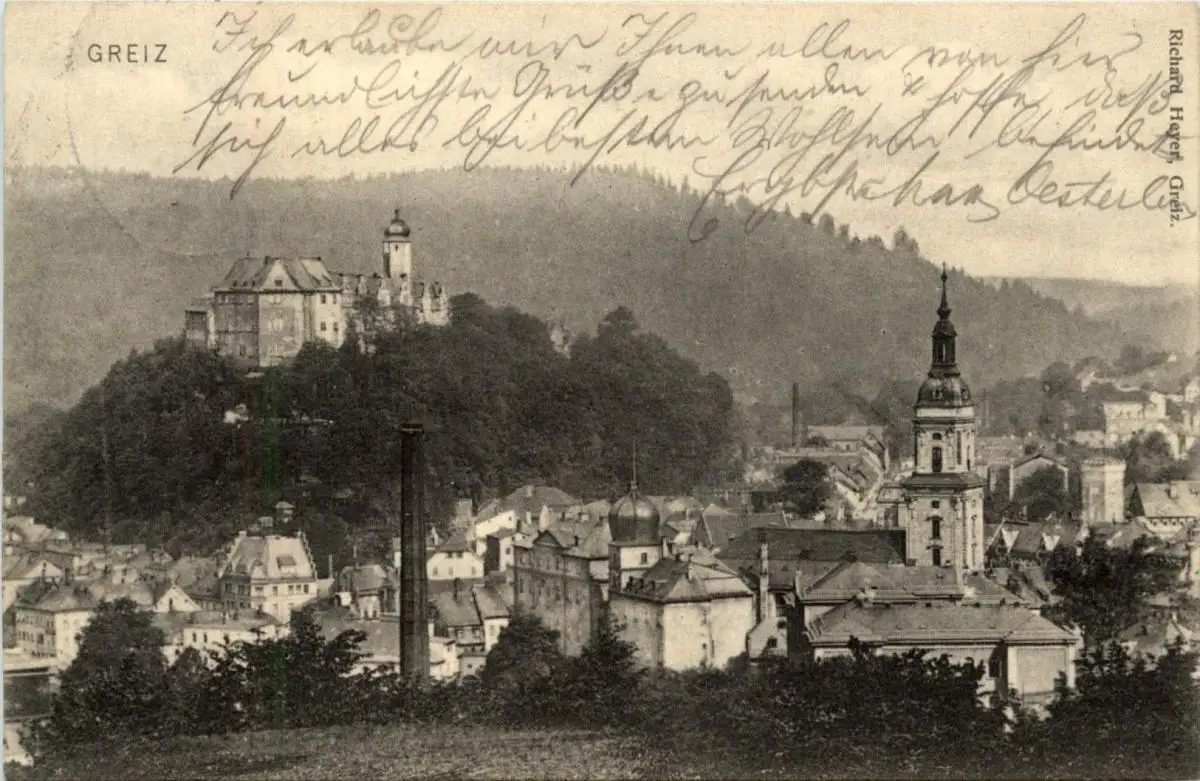 GREIZ
Ich erlaube mir Ihnen allen von hier
freundlichste Grüße zu senden & hoffe, daß
sich alles bei bestem Wohlsein befindet
Richard Heyer, Greiz.